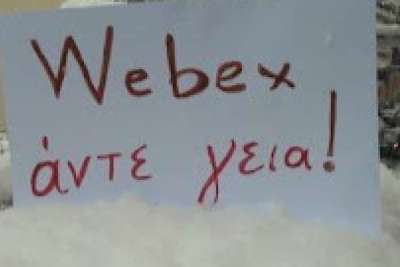 Webex
άντε γεια!